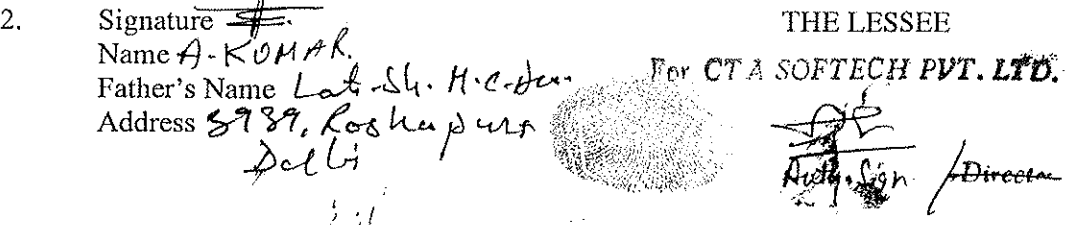 2. Signature
Name A. KUMAR.
Father's Name Late Sh. H.C.
Address 5939, Roshapura
Delhi
THE LESSEE
For CTA SOFTECH PVT. LTD.
Auth. Sign / Director